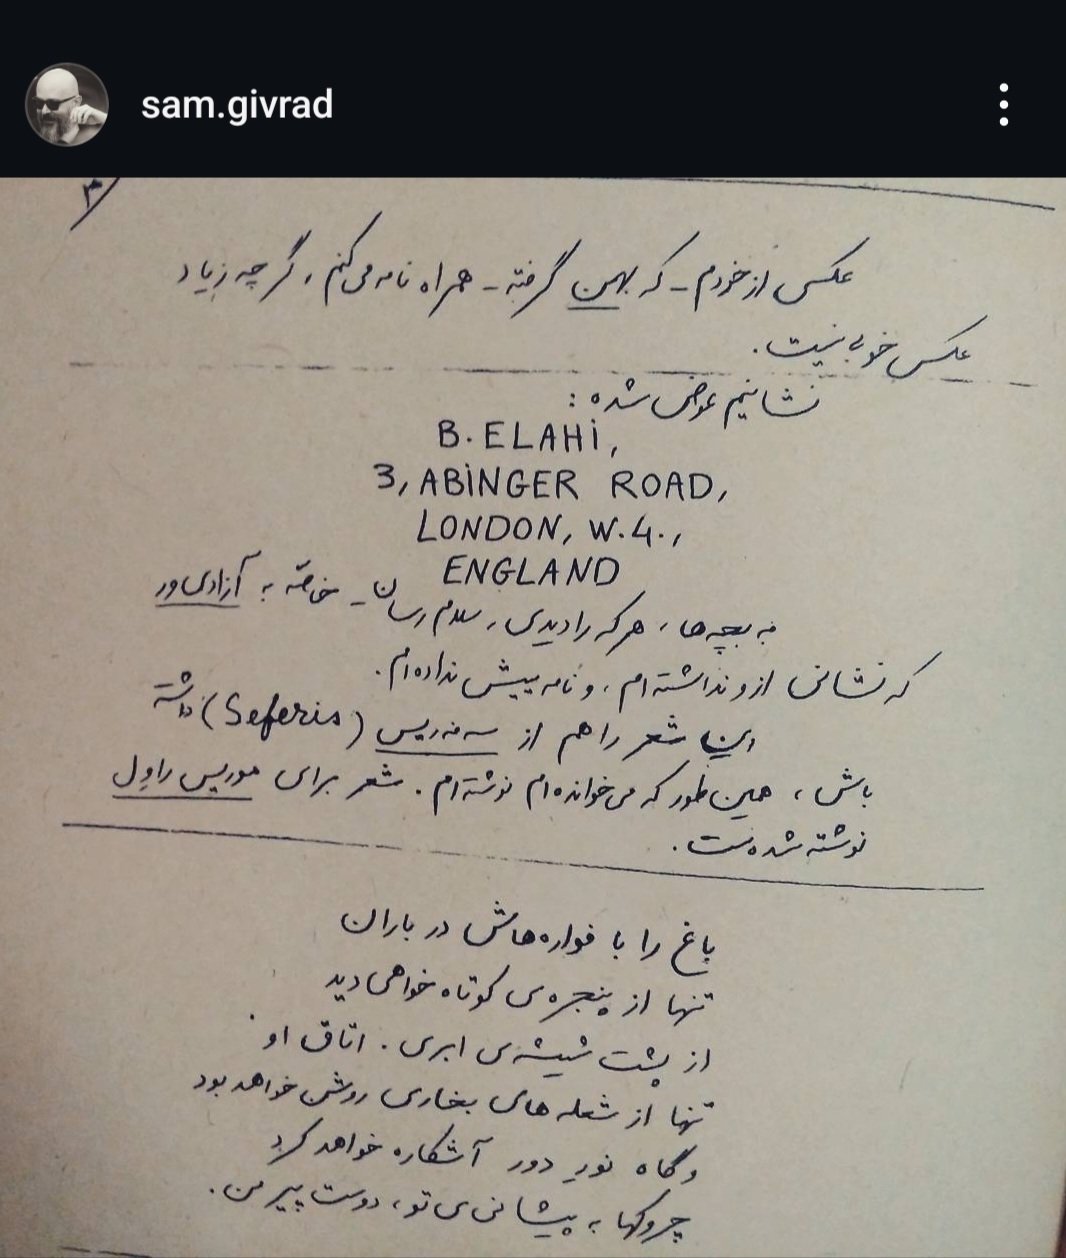 sam.givrad
۳
عکسی از خودم - که بهمن گرفته - همراه نامه می‌کنم، گر چه زیاد
عکس خوبی نیست.
نشانیم عوض شده:
B. ELAHI,
3, ABINGER ROAD,
LONDON, W.4.,
ENGLAND
به بچه‌ها، هر که را دیدی، سلام رسان - خاصّه به آزادی‌ور
که نشانی ازو نداشته‌ام، و نامه پیش نداده‌ام.
این شعر را هم از سه‌فه‌ریس (Seferis) داشته
باش، همین‌طور که می‌خوانده‌ام نوشته‌ام. شعر برای موریس راوِل
نوشته شده‌ست.
باغ را با فواره‌هاش در باران
تنها از پنجره‌ی کوتاه خواهی دید
از پشت شیشه‌ی ابری. اتاق او
تنها از شعله‌های بخاری روشن خواهد بود
و گاه نورِ دور آشکاره خواهد کرد
چروکها به پیشانی‌ی تو، دوست پیر من.